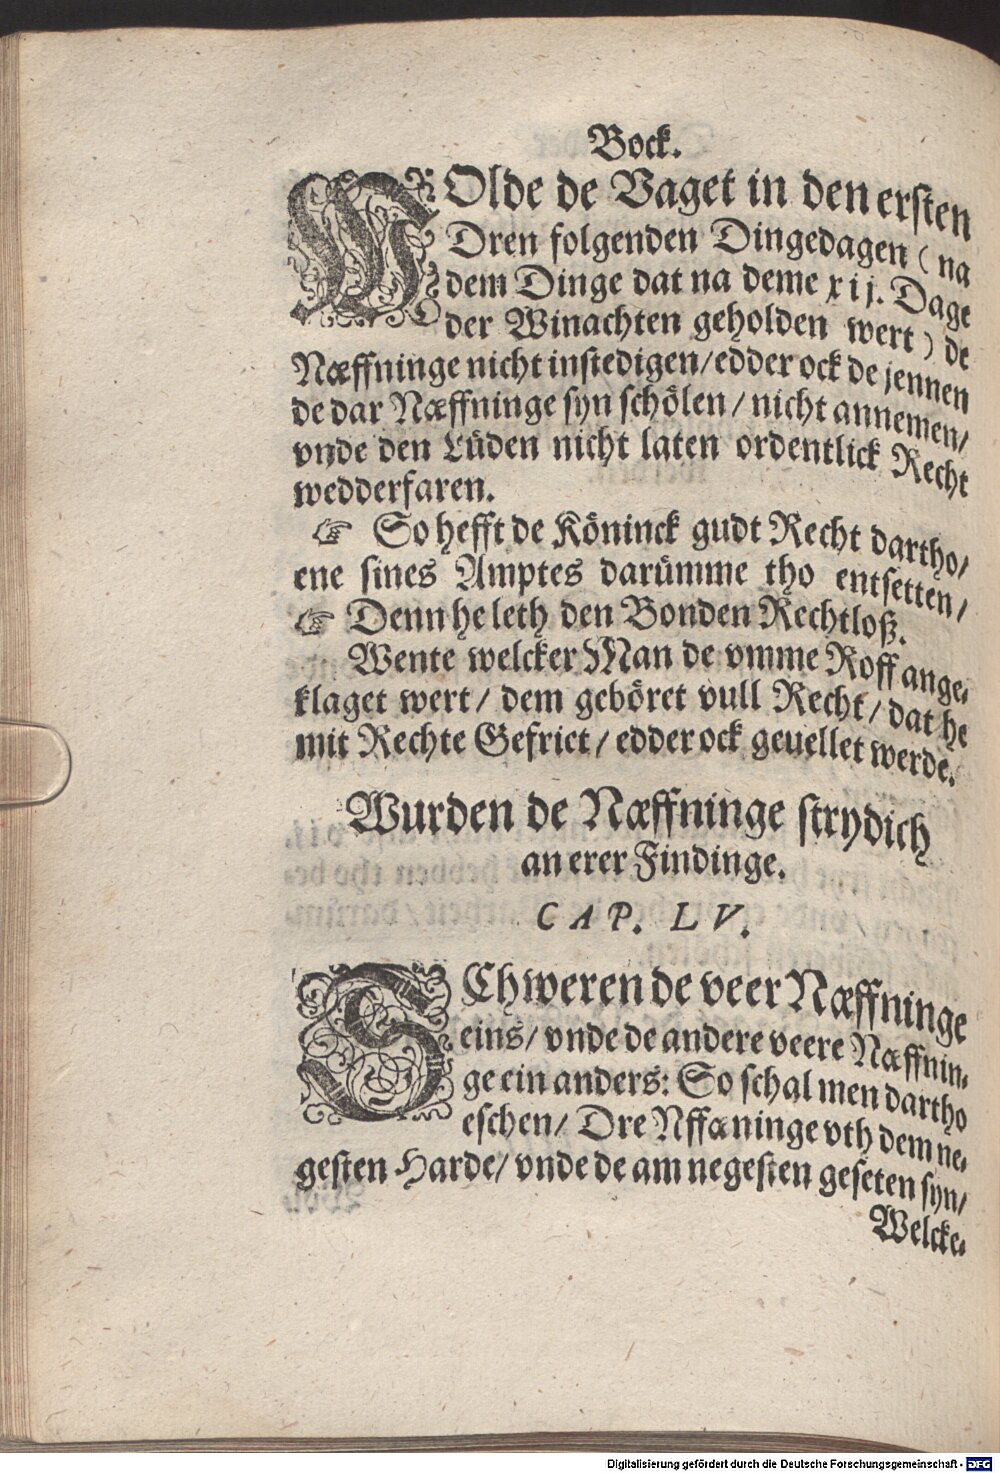 Bock.
WOlde de Vaget in den ersten
Dren folgenden Dingedagen (na
dem Dinge dat na deme xij. Dage
der Winachten geholden wert) de
Næffninge nicht instedigen/edder ock de jennen
de dar Næffninge syn schölen/ nicht annemen/
vnde den Lüden nicht laten ordentlick Recht
wedderfaren.
☞ So hefft de Köninck gudt Recht dartho/
ene sines Amptes darümme tho entsetten/
☞ Denn he leth den Bonden Rechtloß.
Wente welcker Man de vmme Roff ange-
klaget wert/ dem geböret vull Recht/ dat he
mit Rechte Gefriet/ edder ock geuellet werde.
Wurden de Næffninge strydich
an erer Findinge.
CAP. LV.
SChweren de veer Næffninge
eins/ vnde de andere veere Næffnin-
ge ein anders: So schal men dartho
eschen/ Dre Nffæninge vth dem ne-
gesten Harde/ vnde de am negesten geseten syn/
Welcke-
Digitalisierung gefördert durch die Deutsche Forschungsgemeinschaft - DFG